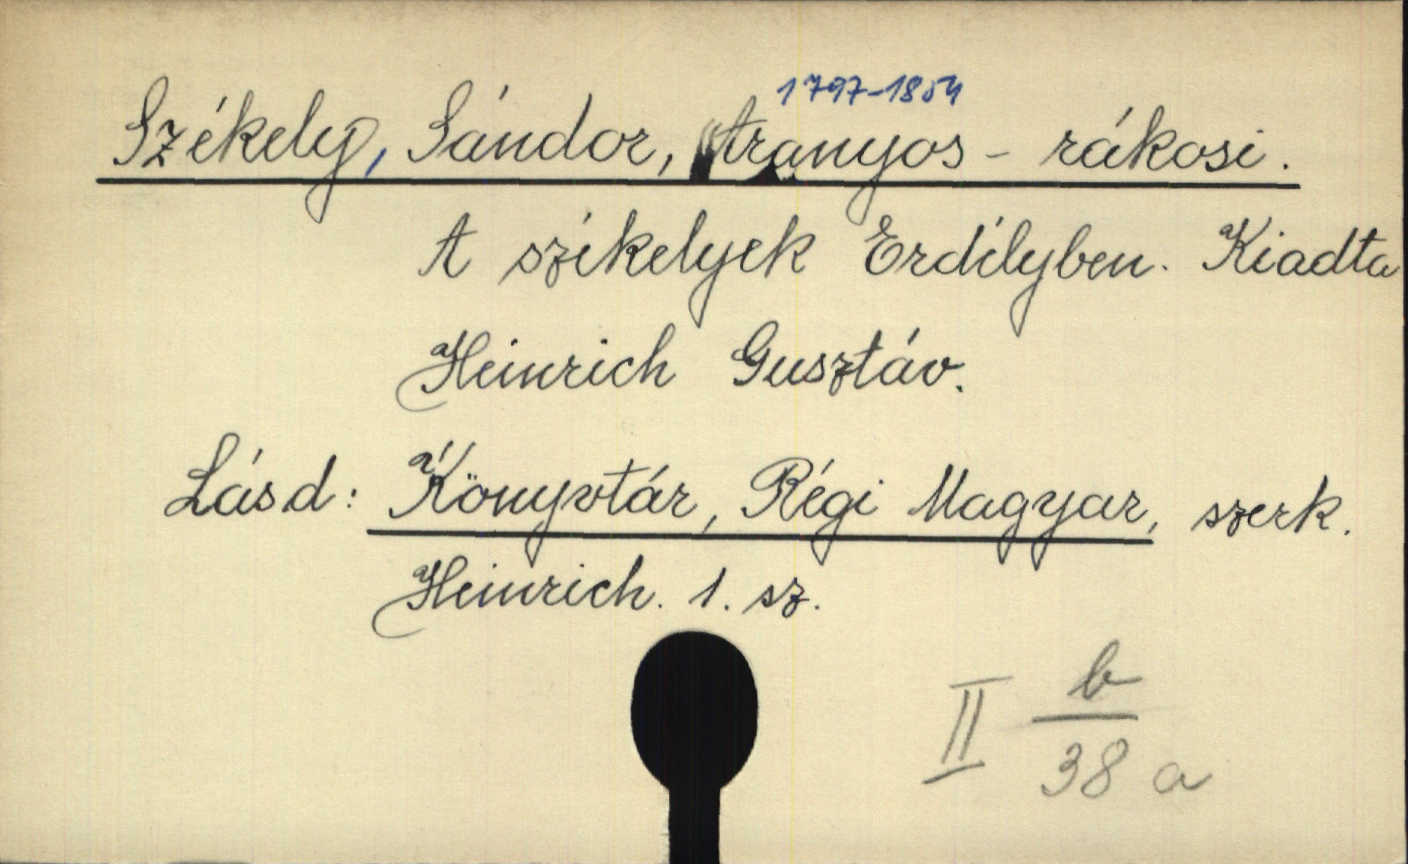 1797-1854
Székely, Sándor, Aranyos - rákosi.
A székelyek Erdélyben. Kiadta
Heinrich Gusztáv.
Lásd: Könyvtár, Régi Magyar, szerk.
Heinrich. 1. sz.
II b
38 a